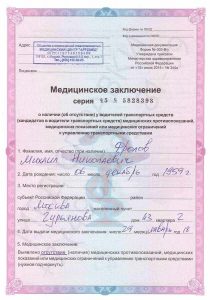 Медицинская документация
Форма № 003-В/у
Утверждена приказом
Министерства здравоохранения
Российской Федерации
от «15» июня 2015 г. № 344н
Медицинское заключение
серия 45 № 5828398
о наличии (об отсутствии) у водителей транспортных средств
(кандидатов в водители транспортных средств) медицинских противопоказаний,
медицинских показаний или медицинских ограничений
к управлению транспортными средствами
1. Фамилия, имя, отчество (при наличии) Фролов
Михаил Николаевич
2. Дата рождения: число 06 месяц декабрь год 1959 г.
3. Место регистрации:
субъект Российской Федерации
район город Москва
улица Гурьянова дом 63 квартира 2
4. Дата выдачи медицинского заключения: число 29 месяц январь год 18
5. Медицинское заключение:
Выявлено отсутствие (наличие) медицинских противопоказаний, медицинских
показаний или медицинских ограничений к управлению транспортными средствами
(нужное подчеркнуть):